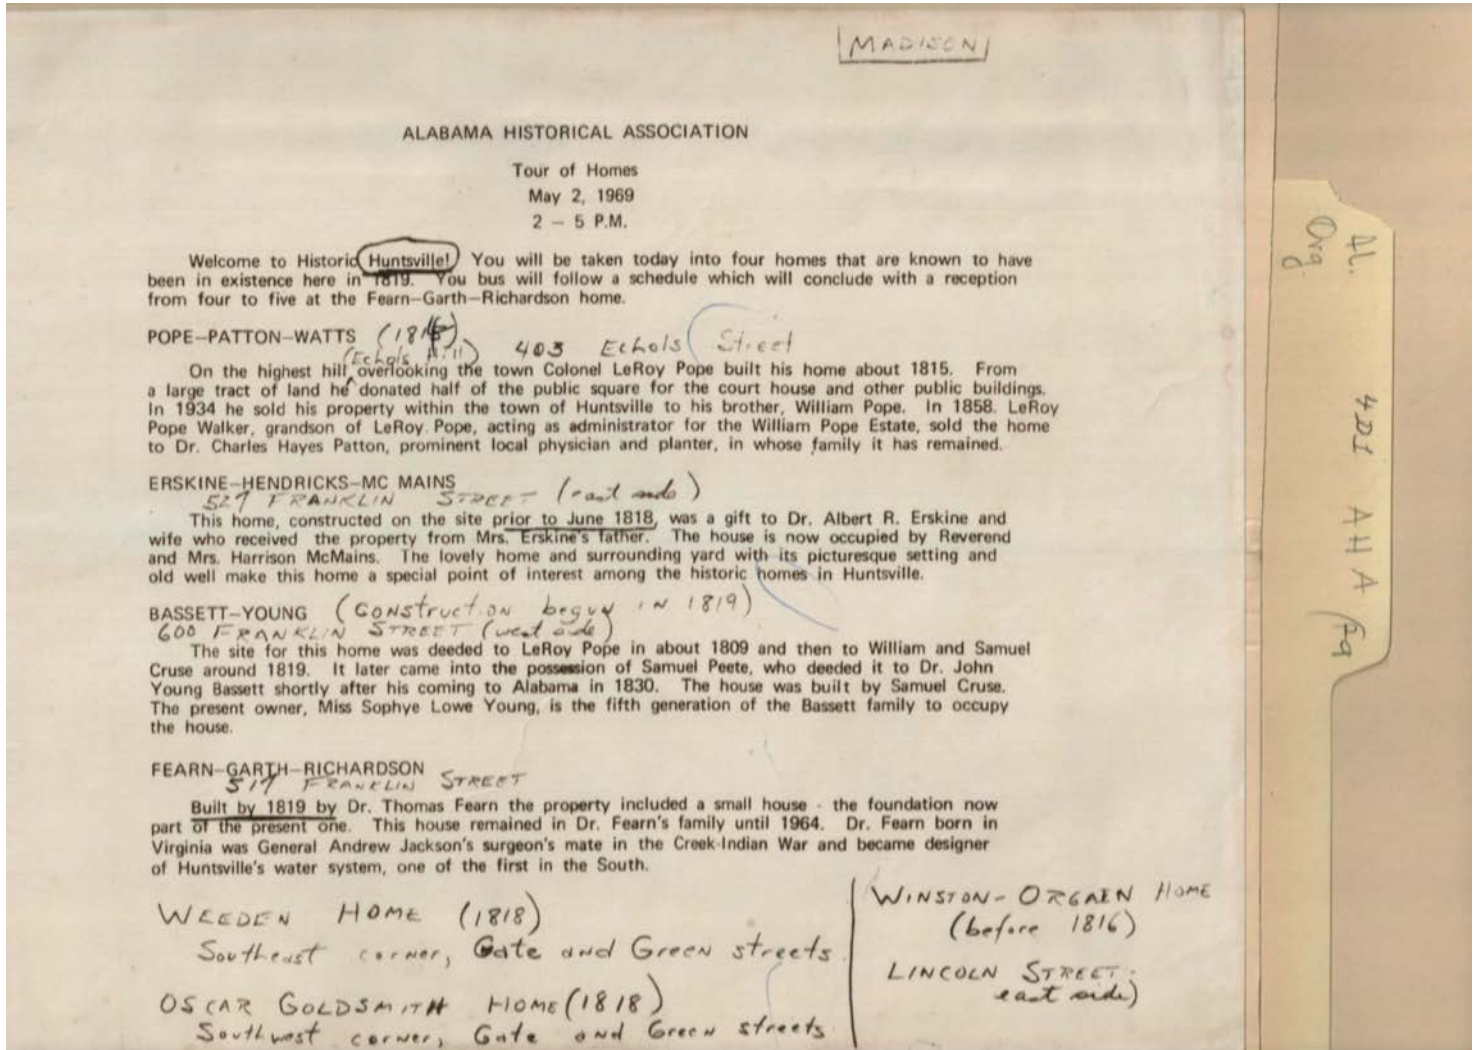 MADISON
ALABAMA HISTORICAL ASSOCIATION
Tour of Homes
May 2, 1969
2 – 5 P.M.
Welcome to Historic Huntsville! You will be taken today into four homes that are known to have
been in existence here in 1819. You bus will follow a schedule which will conclude with a reception
from four to five at the Fearn–Garth–Richardson home.
POPE–PATTON–WATTS (1815) 403 Echols Street
(Echols Hill)
On the highest hill overlooking the town Colonel LeRoy Pope built his home about 1815. From
a large tract of land he donated half of the public square for the court house and other public buildings.
In 1934 he sold his property within the town of Huntsville to his brother, William Pope. In 1858. LeRoy
Pope Walker, grandson of LeRoy Pope, acting as administrator for the William Pope Estate, sold the home
to Dr. Charles Hayes Patton, prominent local physician and planter, in whose family it has remained.
ERSKINE–HENDRICKS–MC MAINS
527 FRANKLIN STREET (east side)
This home, constructed on the site prior to June 1818, was a gift to Dr. Albert R. Erskine and
wife who received the property from Mrs. Erskine's father. The house is now occupied by Reverend
and Mrs. Harrison McMains. The lovely home and surrounding yard with its picturesque setting and
old well make this home a special point of interest among the historic homes in Huntsville.
BASSETT–YOUNG (Construction begun in 1819)
600 FRANKLIN STREET (west side)
The site for this home was deeded to LeRoy Pope in about 1809 and then to William and Samuel
Cruse around 1819. It later came into the possession of Samuel Peete, who deeded it to Dr. John
Young Bassett shortly after his coming to Alabama in 1830. The house was built by Samuel Cruse.
The present owner, Miss Sophye Lowe Young, is the fifth generation of the Bassett family to occupy
the house.
FEARN–GARTH–RICHARDSON
517 FRANKLIN STREET
Built by 1819 by Dr. Thomas Fearn the property included a small house - the foundation now
part of the present one. This house remained in Dr. Fearn's family until 1964. Dr. Fearn born in
Virginia was General Andrew Jackson's surgeon's mate in the Creek-Indian War and became designer
of Huntsville's water system, one of the first in the South.
WEEDEN HOME (1818)
Southeast corner, Gate and Green streets
OSCAR GOLDSMITH HOME (1818)
Southwest corner, Gate and Green streets
WINSTON-ORGAEN HOME
(before 1816)
LINCOLN STREET.
east side)
Al.
Org.
4DI AHA